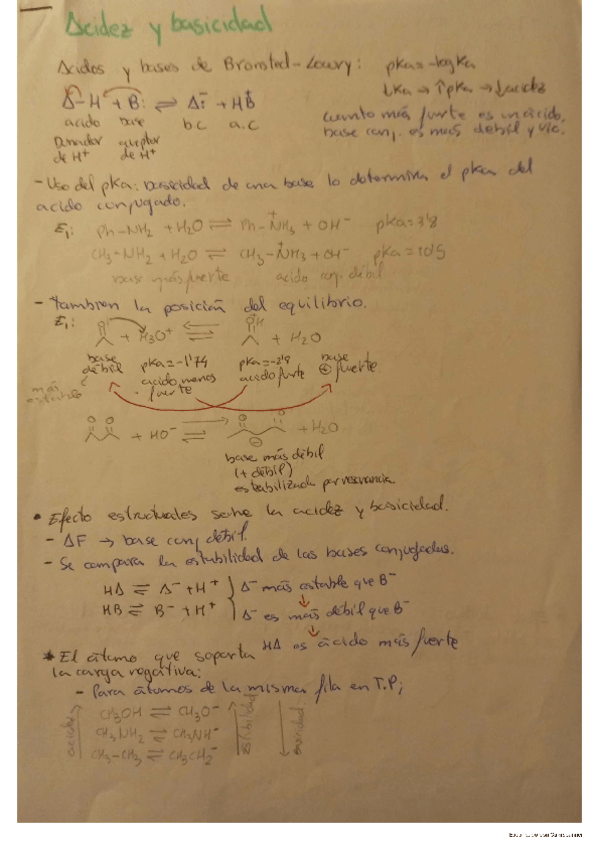 Acidez y basicidad
Acidos y bases de Bronsted-Lowry: pKa = -logKa
↓Ka → ↑pKa → ↓acidez
A-H + B: ⇌ A:⁻ + HB⁺
acido base b.c a.c
Donador aceptor
de H⁺ de H⁺
cuanto más fuerte es un ácido,
base conj. es más débil y v.c.
- Uso del pKa: basicidad de una base lo determina el pKa del
acido conjugado.
Ej: Ph-NH₂ + H₂O ⇌ Ph-NH₃⁺ + OH⁻ pKa = 3'8
CH₃-NH₂ + H₂O ⇌ CH₃-NH₃⁺ + OH⁻ pKa = 10'5
base más fuerte acido conj. débil
- Tambien la posición del equilibrio.
Ej: O + H₃O⁺ ⇌ OH + H₂O
base débil pKa = -1'74 pKa = -2'8 base
más estable acido menos fuerte acido fuerte ⊕ fuerte
O O + HO⁻ ⇌ O O ⊖ + H₂O
base más débil
(+ débil)
estabilizada por resonancia
• Efecto estructurales sobre la acidez y basicidad.
- AF → base conj. débil.
- Se compara la estabilidad de las bases conjugadas.
HA ⇌ A⁻ + H⁺ A⁻ más estable que B⁻
HB ⇌ B⁻ + H⁺ A⁻ es más débil que B⁻
HA es ácido más fuerte
* El átomo que soporta
la carga negativa:
- Para átomos de la misma fila en T.P;
CH₃OH ⇌ CH₃O⁻
CH₃NH₂ ⇌ CH₃NH⁻
CH₃-CH₃ ⇌ CH₃CH₂⁻
acidez
estabilidad
basicidad